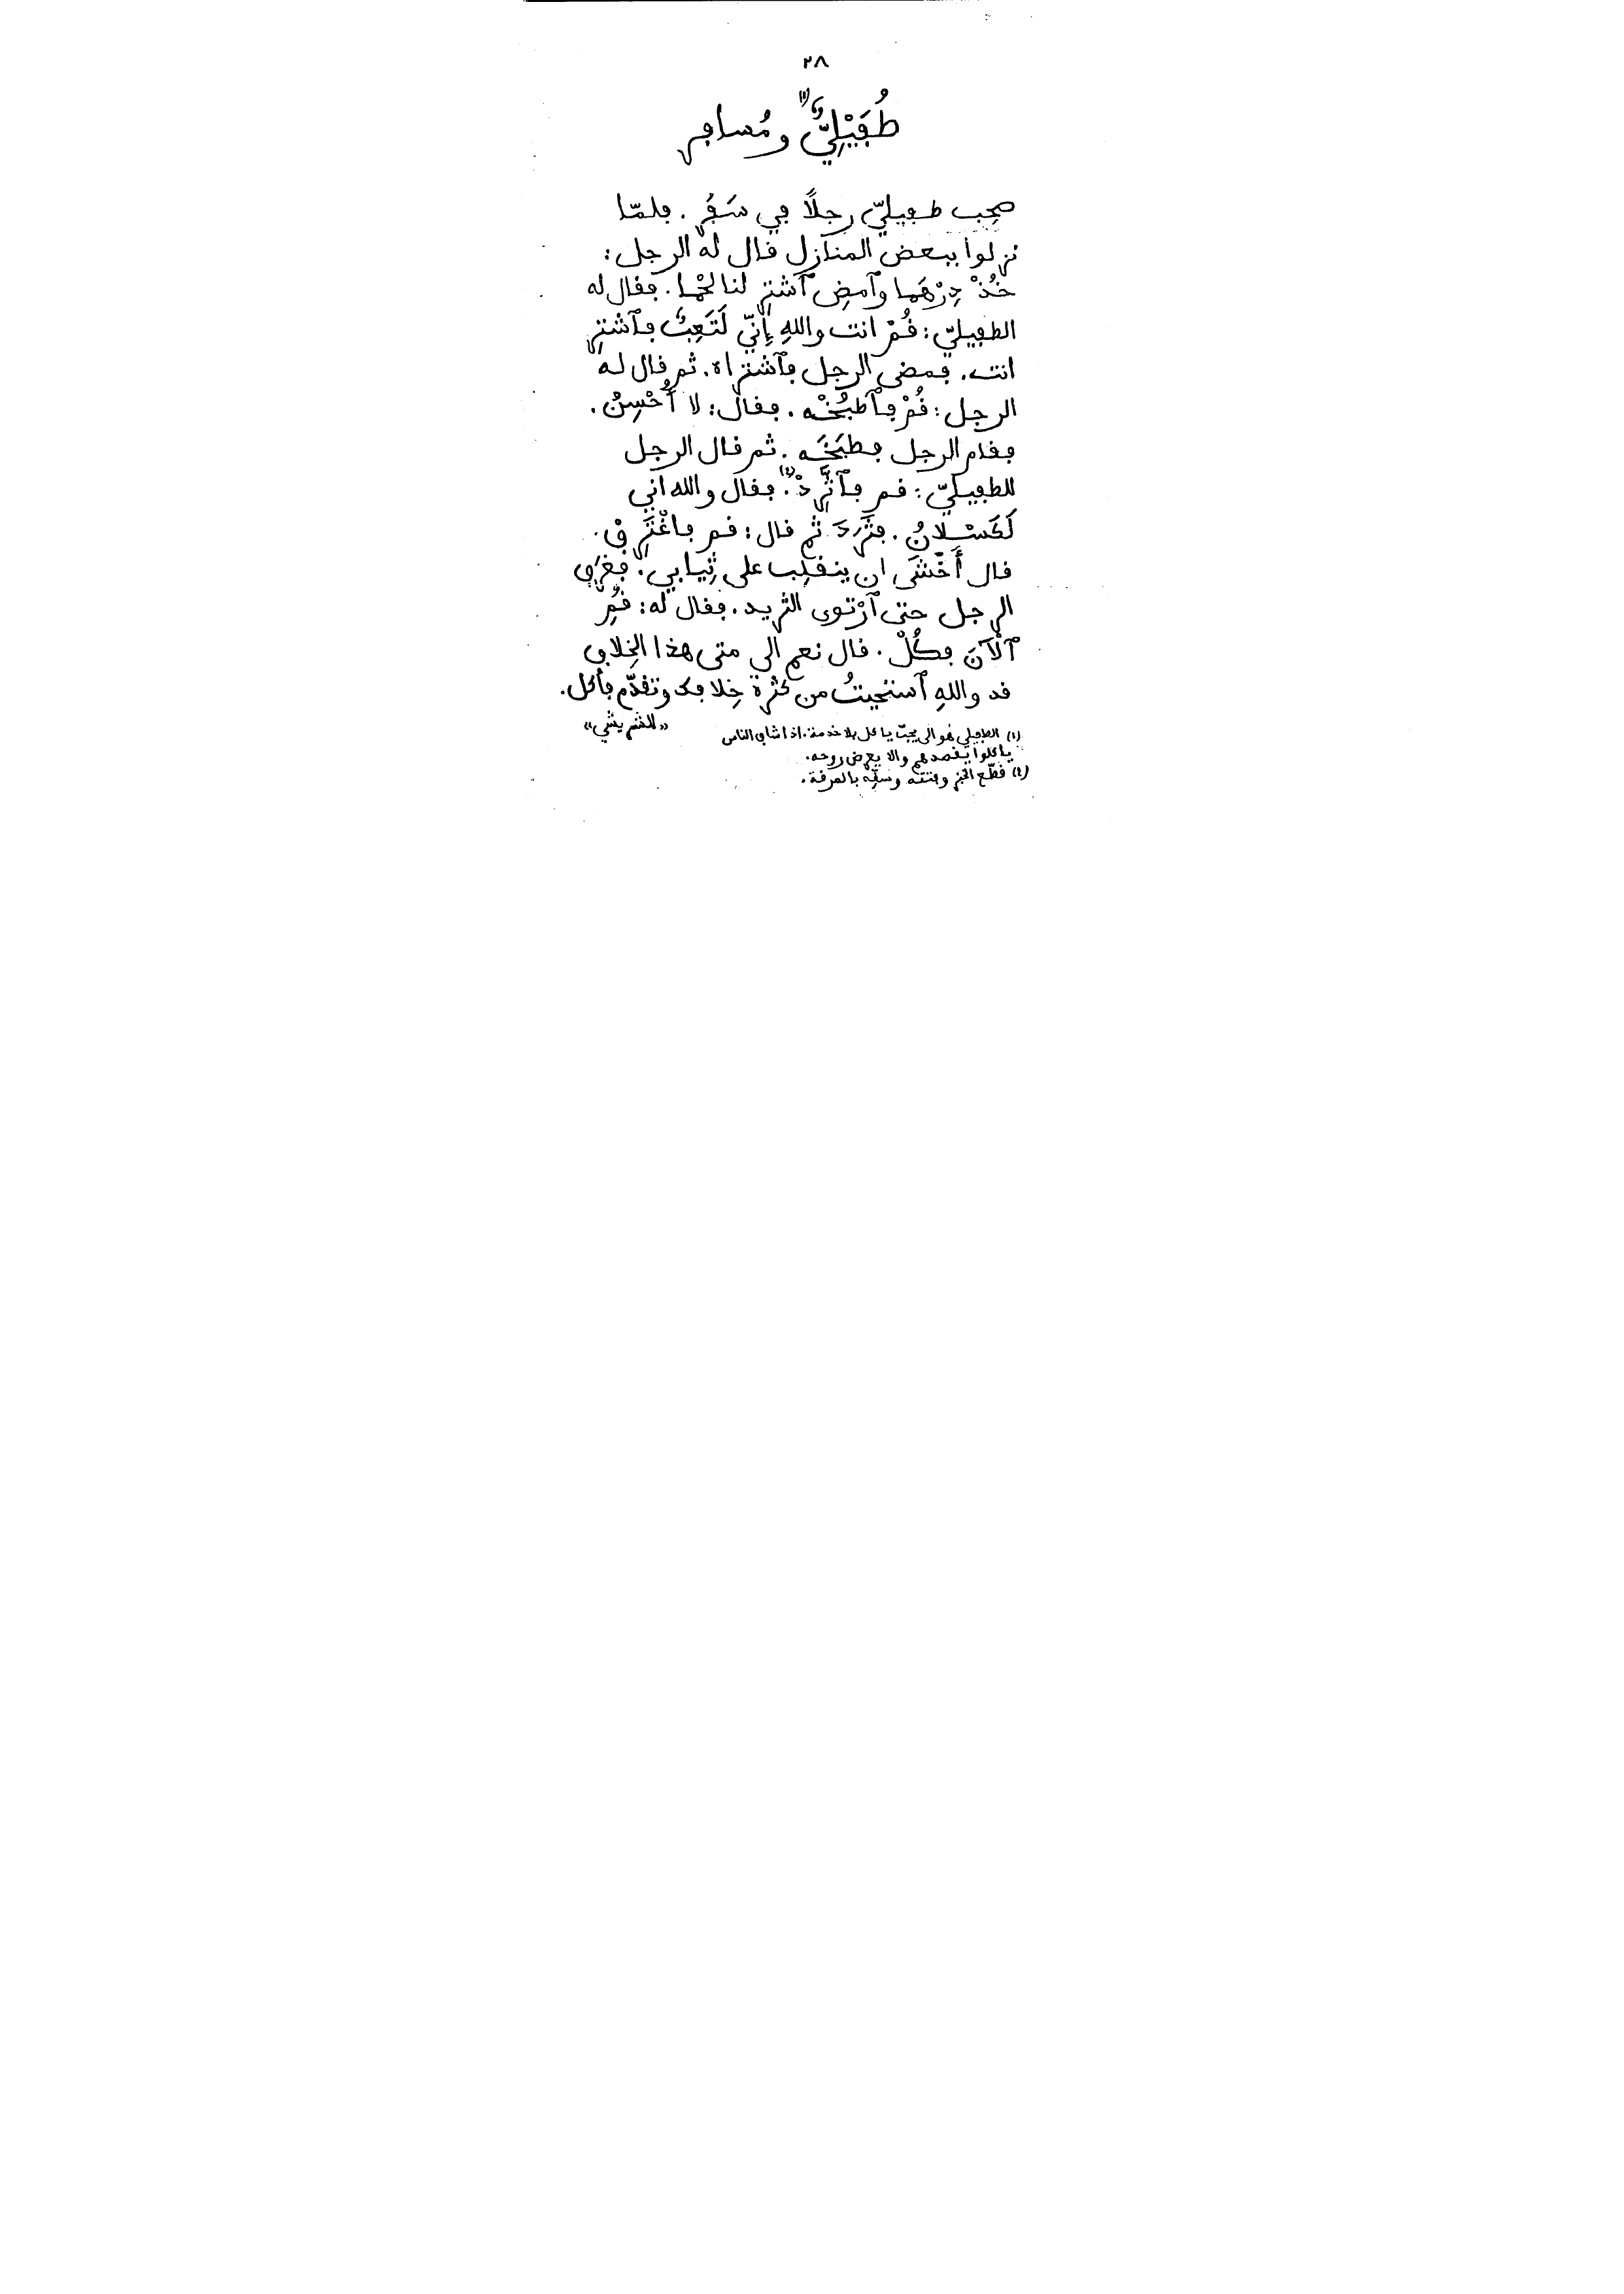 ٢٨
طُفَيْلِيٌّ (١) ومُسافر
صحِب طفيليّ رجلًا في سَفَرٍ . فلمّا
نزلوا ببعض المنازل قال له الرجل :
خُذْ دِرْهَما وٱمضِ ٱشترِ لنا لحْما . فقال له
الطفيليّ : قُمْ انت واللهِ إِنّي لَتَعِبٌ فٱشْترِ
انت . فمضى الرجل فٱشتراه . ثم قال له
الرجل : قُمْ فٱطْبُخْه . فقال : لا أُحْسِنُ .
فقام الرجل فطبَخَه . ثم قال الرجل
للطفيليّ : قم فٱثْرُدْ (٢) . فقال والله اني
لَكَسْلانُ . فثَرَدَ ثم قال : قم فاغْتَرِفْ .
قال أَخْشَى ان ينقلِب على ثِيابي . فغرَف
الرجل حتى ٱرْتوى الثريد . فقال له : قُمِ
ٱلْآنَ فكُلْ . قال نعم الى متى هذا الخِلاف
قد واللهِ ٱستحيتُ من كثرة خِلافك وتقدّم فأكل .
«للشريشي»
(١) الطفيلي هو الى يحبّ ياكل بلا خدمة . اذا شاف الناس
ياكلوا يقصدهم والا يعرض روحه .
(٢) قطّع الخبز وفتته وسقِّه بالمرقة .